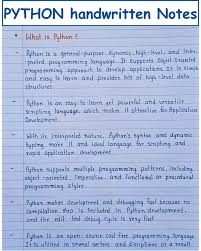 PYTHON handwritten Notes
* What is Python?
- Python is a general-purpose, dynamic, high-level and inter-
preted programming language. It supports Object Oriented
programming approach to develop applications. It is simple
and easy to learn and provides lots of high-level data
structures.
- Python is an easy to learn yet powerful and versatile
scripting language, which makes it attractive for Application
Development.
- With its interpreted nature, Python's syntax and dynamic
typing make it an ideal language for scripting and
rapid application development.
- Python supports multiple programming patterns, including
object-oriented, imperative, and functional or procedural
programming styles.
- Python makes development and debugging fast because no
compilation step is included in Python development,
and the edit-test-debug cycle is very fast.
- Python is an open-source cost free programming language.
It is utilized in several sectors and disciplines as a result.